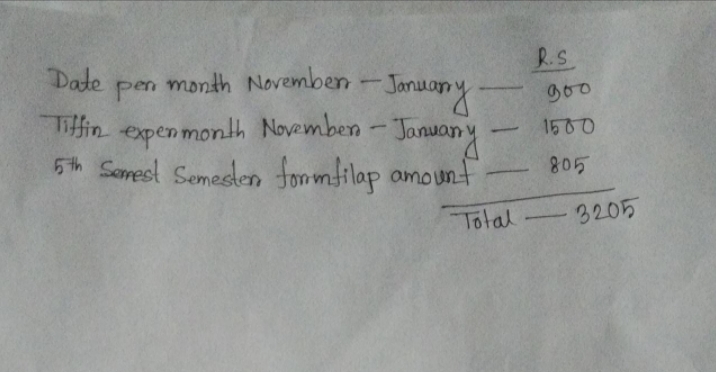 R.S
Date per month November - January — 900
Tiffin expenmonth November - January — 1500
5th Semest Semester formfilap amount — 805
Total — 3205